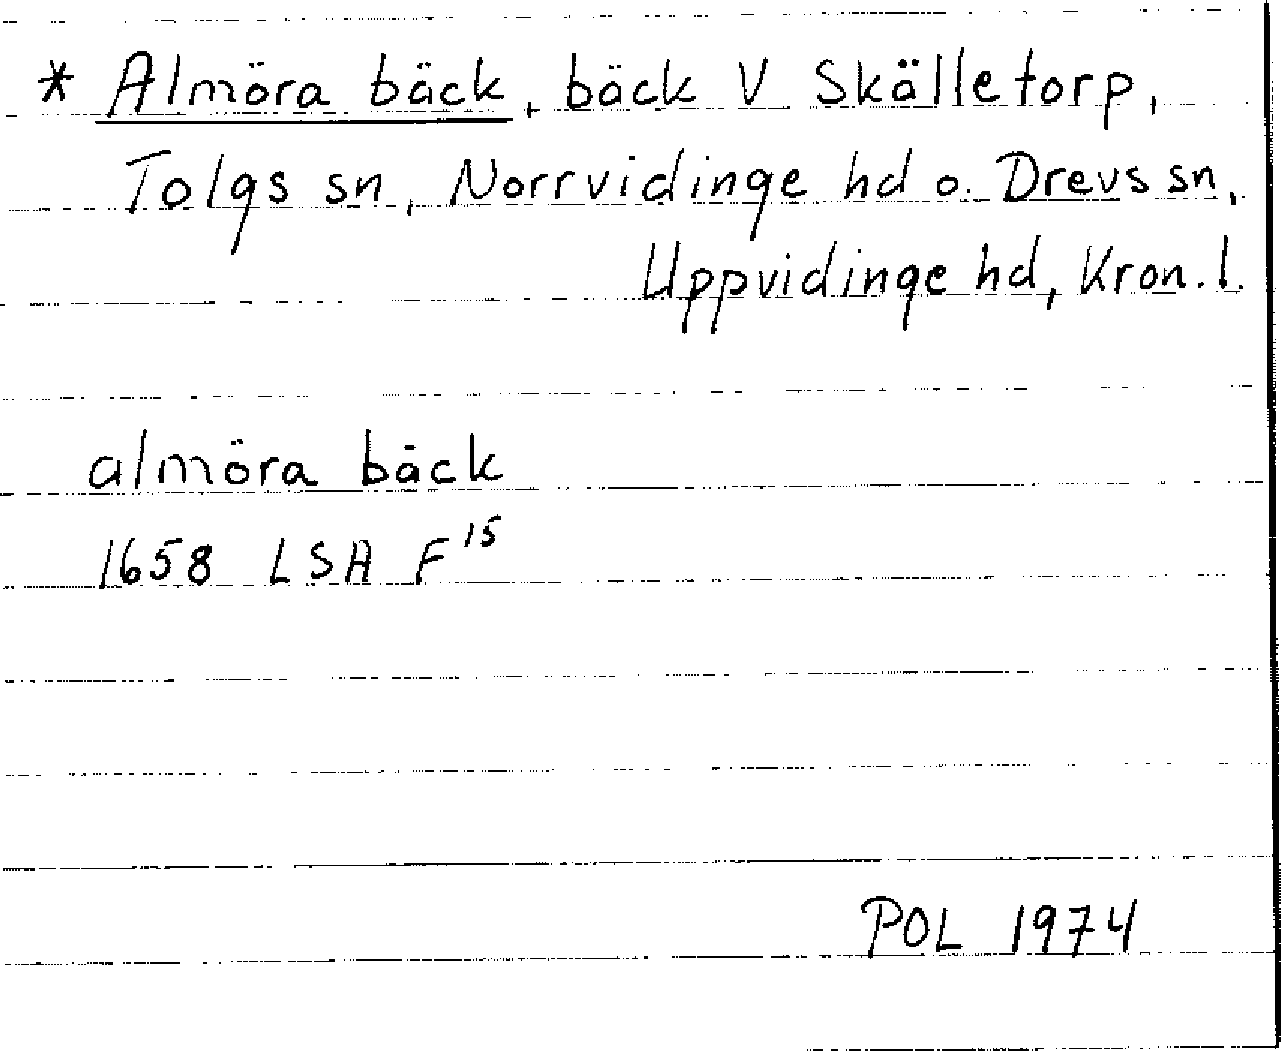 * Almöra bäck, bäck V Skälletorp,
Tolgs sn, Norrvidinge hd o. Drevs sn,
Uppvidinge hd, Kron. l.
almöra bäck
1658 LSA F 15
POL 1974